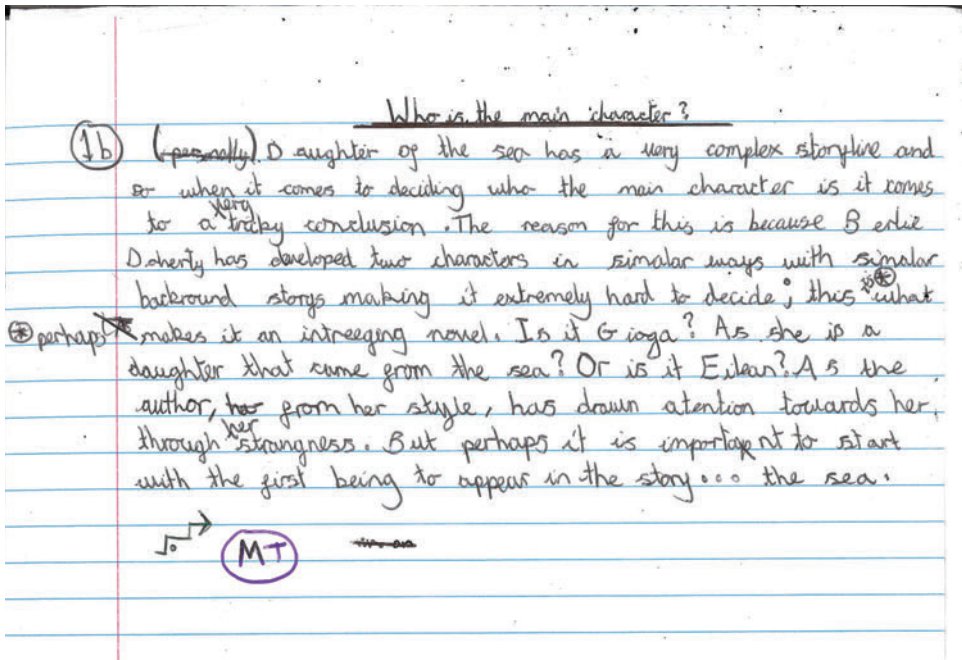 Who is the main character?
1b (personally). Daughter of the sea has a very complex storyline and
so when it comes to deciding who the main character is it comes
to a very tricky conclusion. The reason for this is because Berlie
Doherty has developed two characters in simalar ways with simalar
backround storys making it extremely hard to decide; this is ⊛ what
⊛ perhaps makes it an intreeging novel. Is it Gioga? As she is a
daughter that came from the sea? Or is it Eilean? As the
author, from her style, has drawn atention towards her,
through her strangness. But perhaps it is important to start
with the first being to appear in the story... the sea.
MT